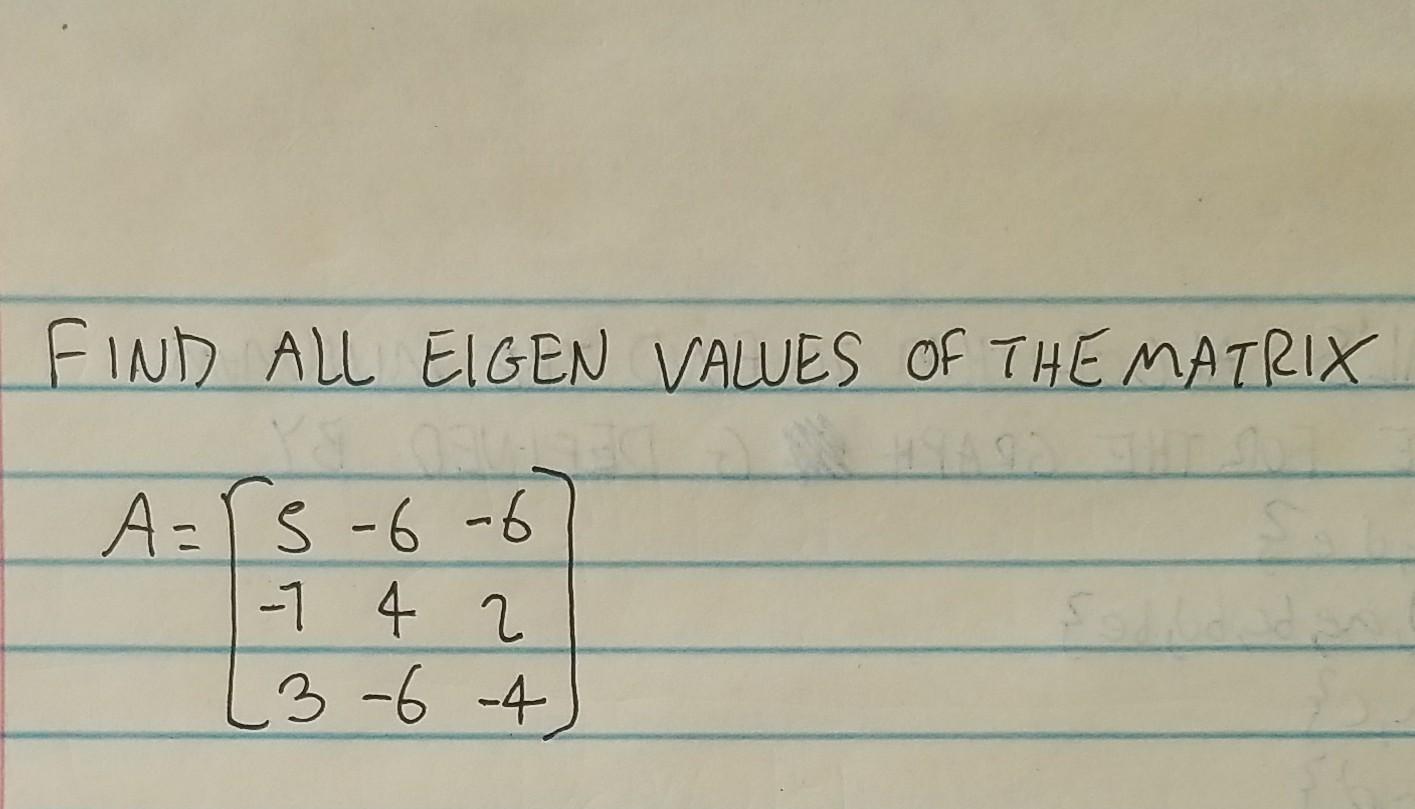 FIND ALL EIGEN VALUES OF THE MATRIX
A = [5 -6 -6
-1 4 2
3 -6 -4]